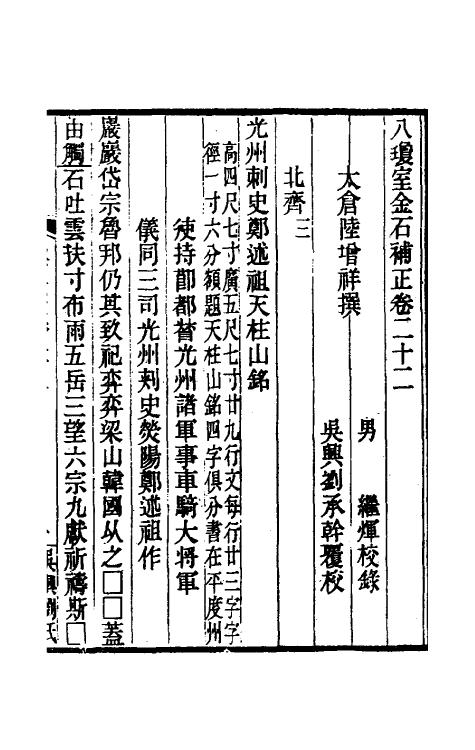 八瓊室金石補正卷二十二
太倉陸增祥撰
男　繼煇校錄
吳興劉承幹覆校
北齊三
光州刺史鄭述祖天柱山銘
高四尺七寸廣五尺七寸廿九行文每行廿三字字
徑一寸六分額題天柱山銘四字俱分書在平度州
使持節都督光州諸軍事車騎大將軍
儀同三司光州刾史熒陽鄭述祖作
巖巖岱宗魯邦仍其致祀弈弈梁山韓國从之□□蓋
由觸石吐雲扶寸布雨五岳三望六宗九獻祈禱斯□
吳興劉氏